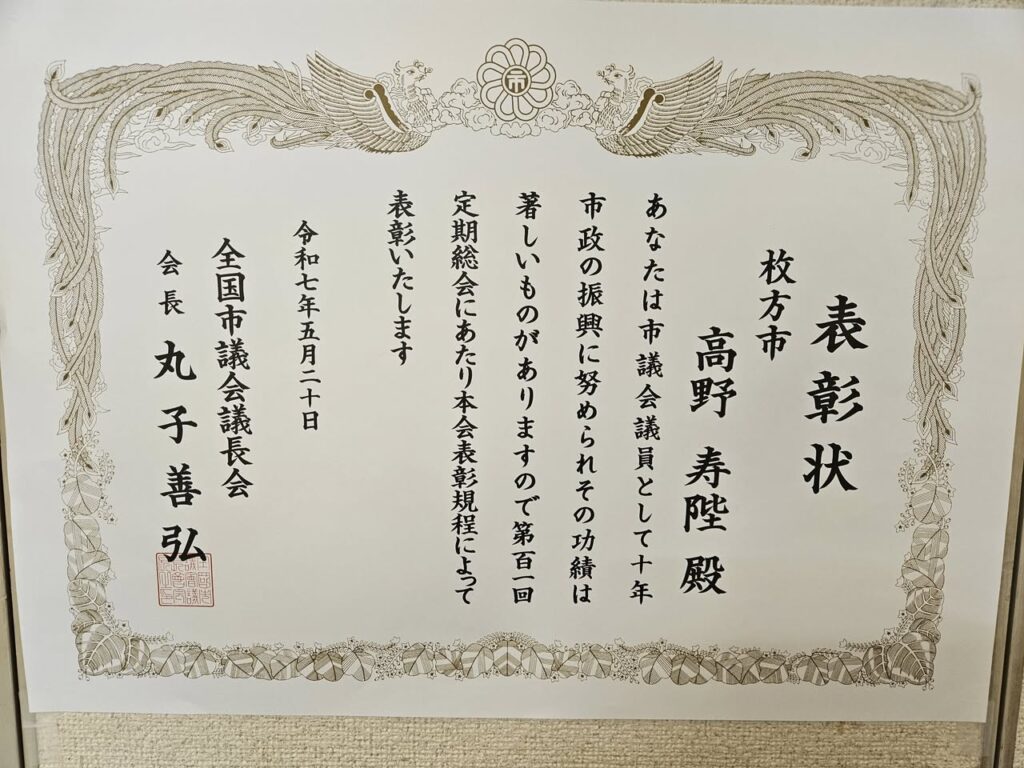 表彰状
枚方市
高野 寿陛 殿
あなたは市議会議員として十年
市政の振興に努められその功績は
著しいものがありますので第百一回
定期総会にあたり本会表彰規程によって
表彰いたします
令和七年五月二十日
全国市議会議長会
会長 丸子善弘